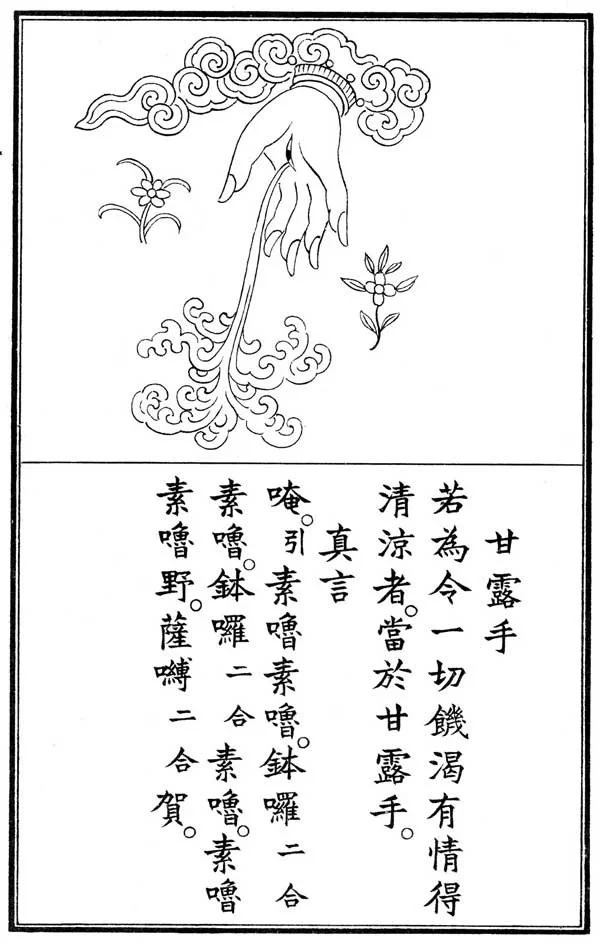 甘露手
若為令一切饑渴有情得
清涼者。當於甘露手。
真言
唵。引 素嚕素嚕。鉢囉 二合
素嚕。鉢囉 二合 素嚕。素嚕
素嚕野。薩嚩 二合 賀。